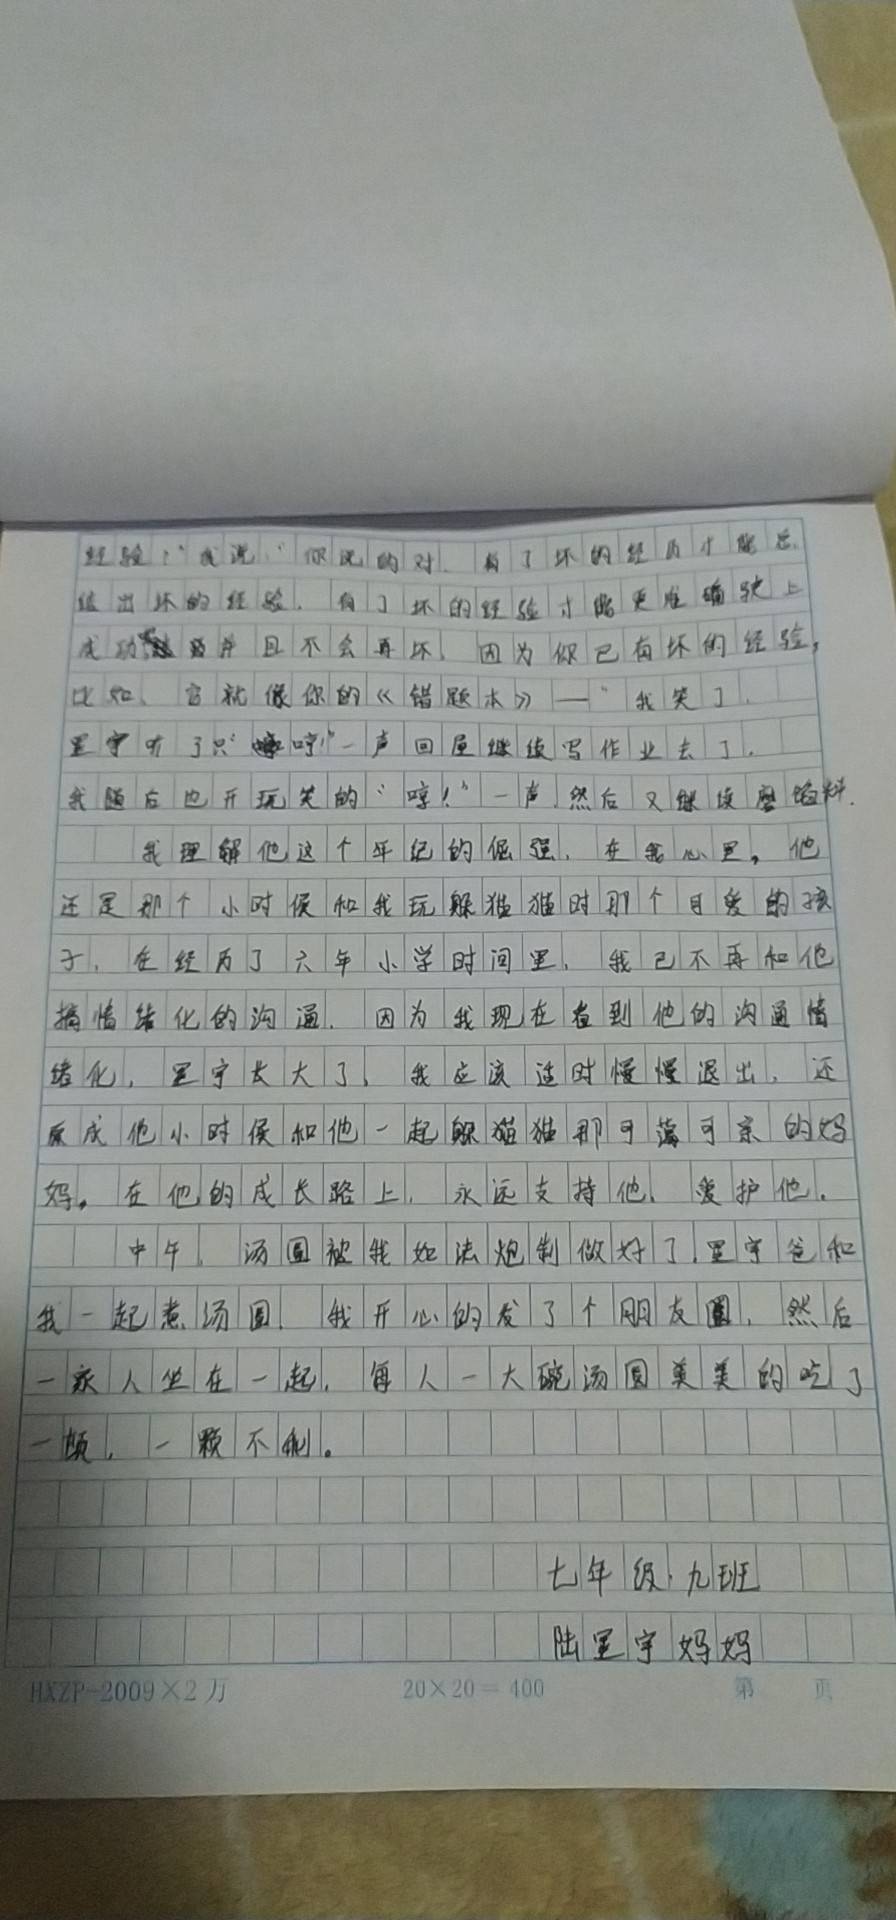 经验！"我说："你说的对，有了坏的经历才能总
结出坏的经验，有了坏的经验才能更准确驶上
成功 并且不会再坏，因为你已有坏的经验，
比如，它就像你的《错题本》——"我笑了，
星宇听了只"哼！"一声回屋继续写作业去了，
我随后也开玩笑的"哼！"一声，然后又继续磨馅料.
我理解他这个年纪的倔强，在我心里，他
还是那个小时候和我玩躲猫猫时那个可爱的孩
子，在经历了六年小学时间里，我已不再和他
搞情绪化的沟通，因为我现在看到他的沟通情
绪化，星宇长大了，我应该适时慢慢退出，还
原成他小时候和他一起躲猫猫那可蔼可亲的妈
妈。在他的成长路上，永远支持他、爱护他.
中午，汤圆被我如法炮制做好了，星宇爸和
我一起煮汤圆，我开心的发了个朋友圈，然后
一家人坐在一起，每人一大碗汤圆美美的吃了
一顿，一颗不剩。
七年级·九班
陆星宇妈妈
HXZP-2009×2万 20×20=400 第 页